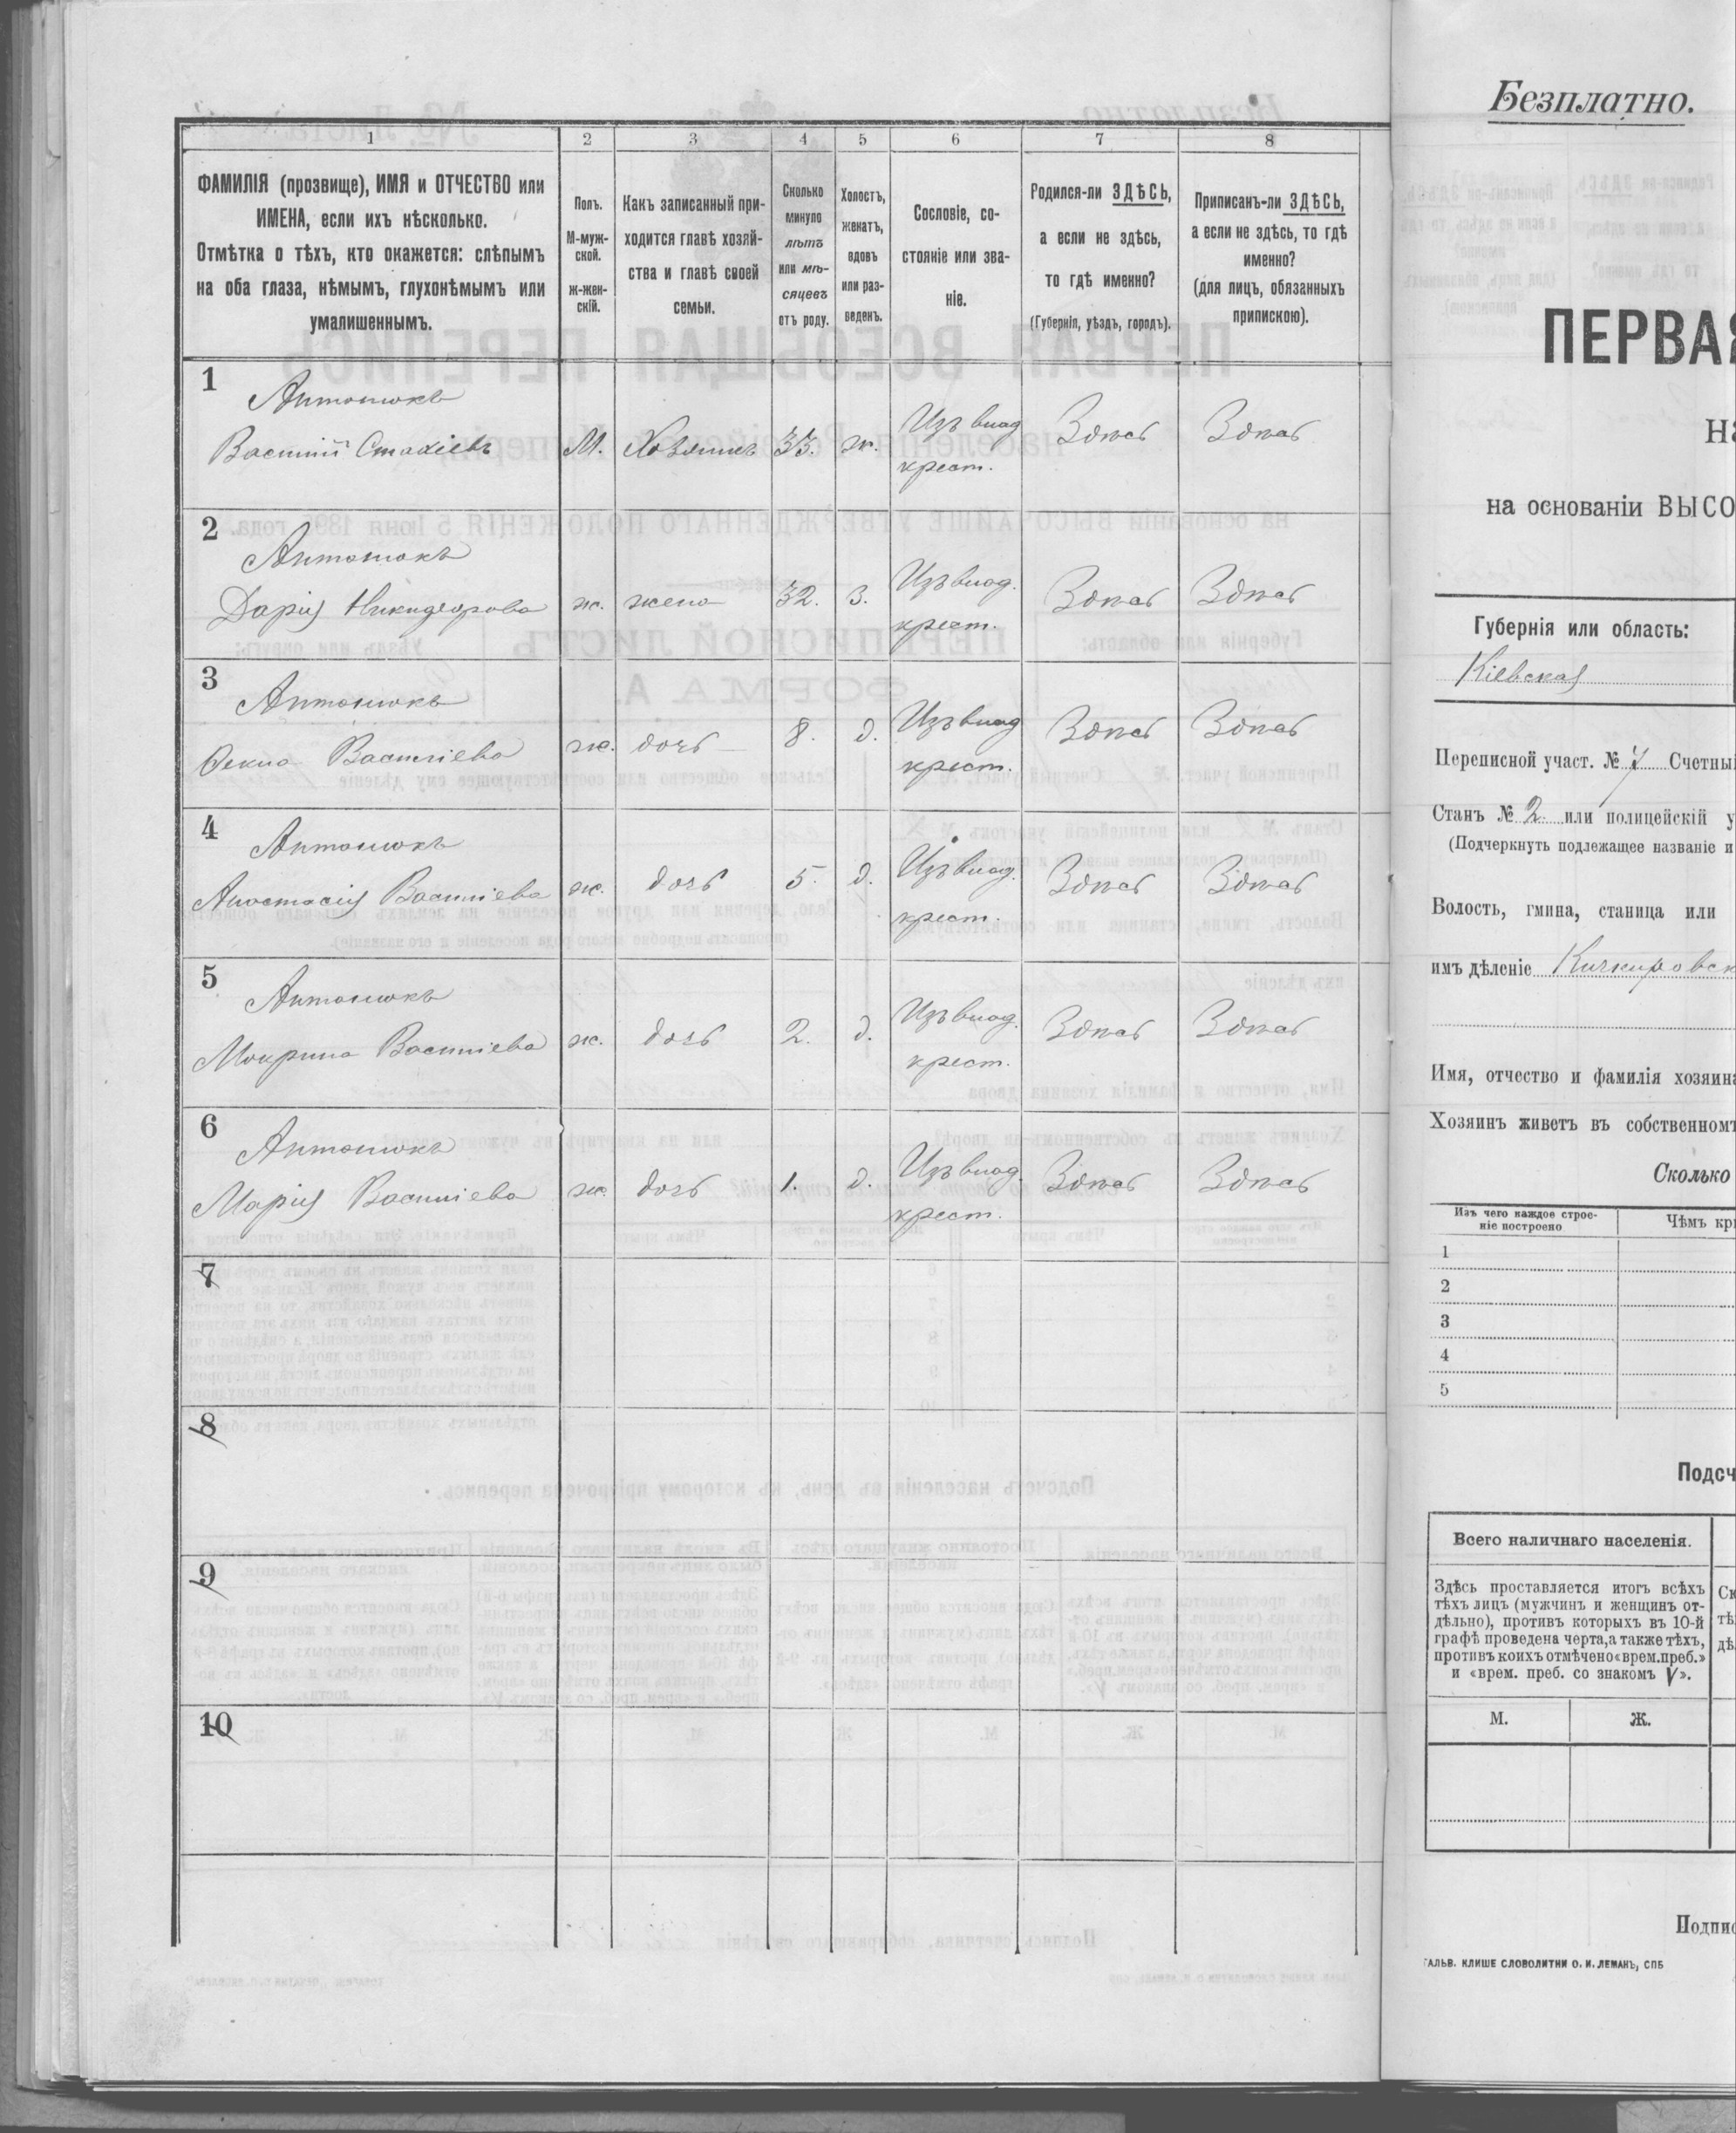 1 2 3 4 5 6 7 8
ФАМИЛІЯ (прозвище), ИМЯ и ОТЧЕСТВО или
ИМЕНА, если ихъ нѣсколько.
Отмѣтка о тѣхъ, кто окажется: слѣпымъ
на оба глаза, нѣмымъ, глухонѣмымъ или
умалишеннымъ.
Полъ.
М-муж-
ской.
Ж-жен-
скій.
Какъ записанный при-
ходится главѣ хозяй-
ства и главѣ своей
семьи.
Сколько
минуло
лѣтъ
или мѣ-
сяцевъ
отъ роду.
Холостъ,
женатъ,
вдовъ
или раз-
веденъ.
Сословіе, со-
стояніе или зва-
ніе.
Родился-ли ЗДѢСЬ,
а если не здѣсь,
то гдѣ именно?
(Губернія, уѣздъ, городъ).
Приписанъ-ли ЗДѢСЬ,
а если не здѣсь, то гдѣ
именно?
(для лицъ, обязанныхъ
припискою).
1
Антонюкъ
Василій Стахіевъ М. Хозяинъ 33. ж. Изъ влад крест. Здѣсь Здѣсь
2
Антонюкъ
Дарія Никифорова ж. жена 32. З. Изъ влад. крест. Здѣсь Здѣсь
3
Антонюкъ
Ѳекла Василіева ж. дочь 8. д. Изъ влад крест. Здѣсь Здѣсь
4
Антонюкъ
Анастасія Василіева ж. дочь 5. д. Изъ влад. крест. Здѣсь Здѣсь
5
Антонюкъ
Мокрина Василіева ж. дочь 2. д. Изъ влад. крест. Здѣсь Здѣсь
6
Антонюкъ
Марія Василіева ж. дочь 1. д. Изъ влад. крест. Здѣсь Здѣсь
7
8
9
10
Безплатно.
ПЕРВАЯ
на
на основаніи ВЫСО
Губернія или область:
Кіевская
Переписной участ. № 7 Счетный
Станъ № 2. или полицейскій у
(Подчеркнуть подлежащее названіе и
Волость, гмина, станица или
имъ дѣленіе
Имя, отчество и фамилія хозяина
Хозяинъ живетъ въ собственномъ
Сколько
Изъ чего каждое строе-
ніе построено
Чѣмъ кр
1
2
3
4
5
Подсч
Всего наличнаго населенія.
Здѣсь проставляется итогъ всѣхъ
тѣхъ лицъ (мужчинъ и женщинъ от-
дѣльно), противъ которыхъ въ 10-й
графѣ проведена черта, а также тѣхъ,
противъ коихъ отмѣчено «врем. преб.»
и «врем. преб. со знакомъ V».
Ск
тѣ
дѣ
М. Ж.
Подпис
ГАЛЬВ. КЛИШЕ СЛОВОЛИТНИ О. И. ЛЕМАНЪ, СПБ